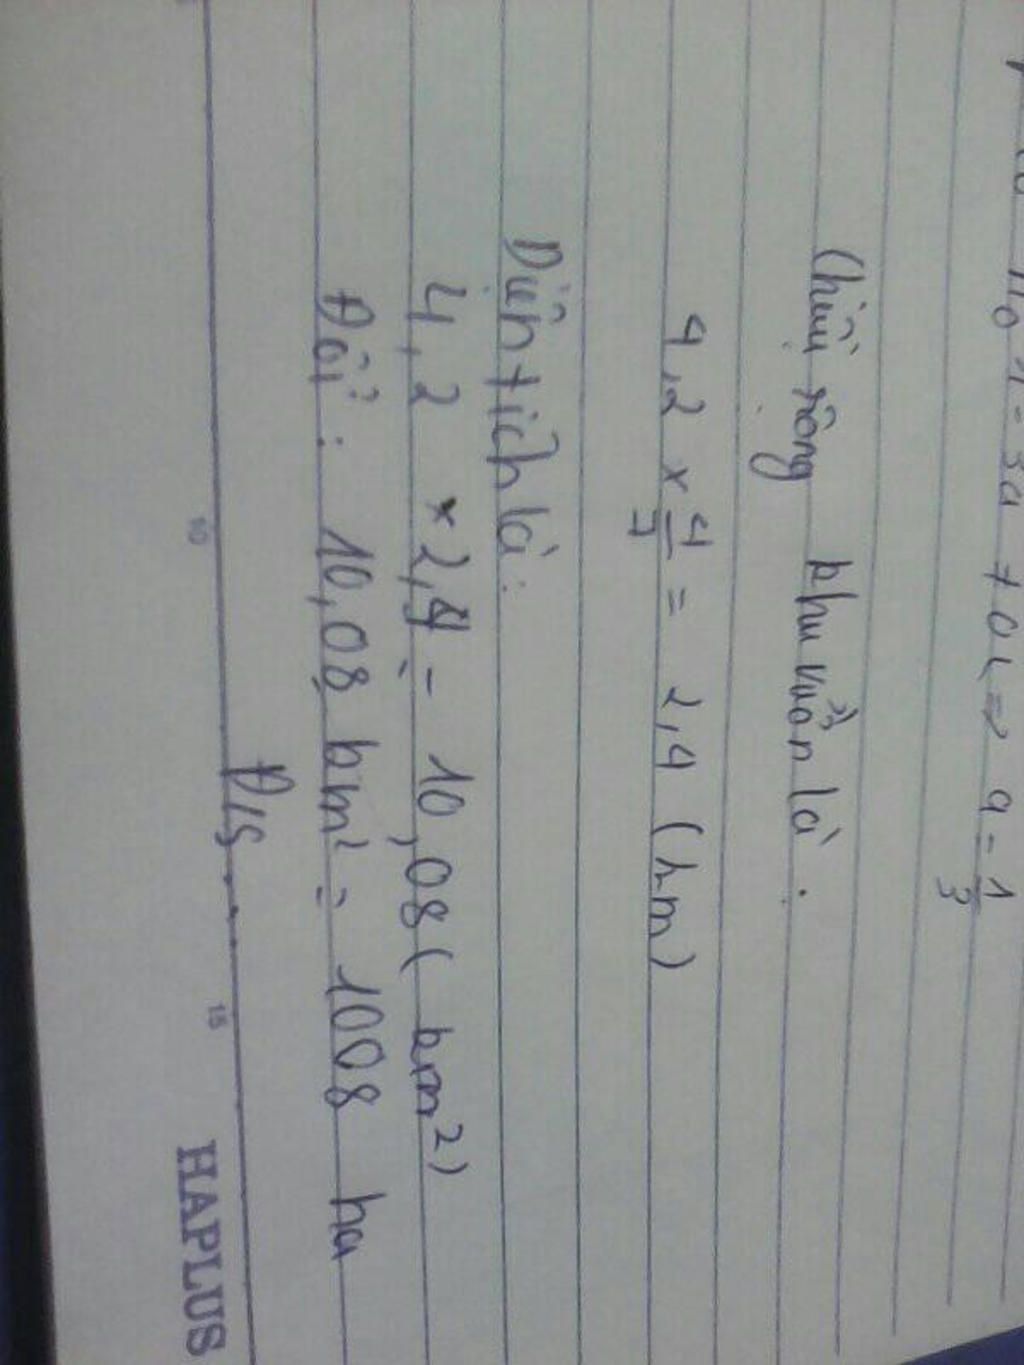 = 3a + 0 => a = 1/3
Chiều rộng khu vườn là :
4,2 x 4/7 = 2,4 (hm)
Diện tích là :
4,2 x 2,4 = 10,08 ( km²)
Đổi : 10,08 km² = 1008 ha
Đ/S
10 15
HAPLUS